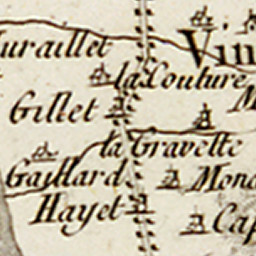 uraillet
Vin
la Couture
Gillet
M
la Gravette
Gaillard
Mona
Hayet
Cap